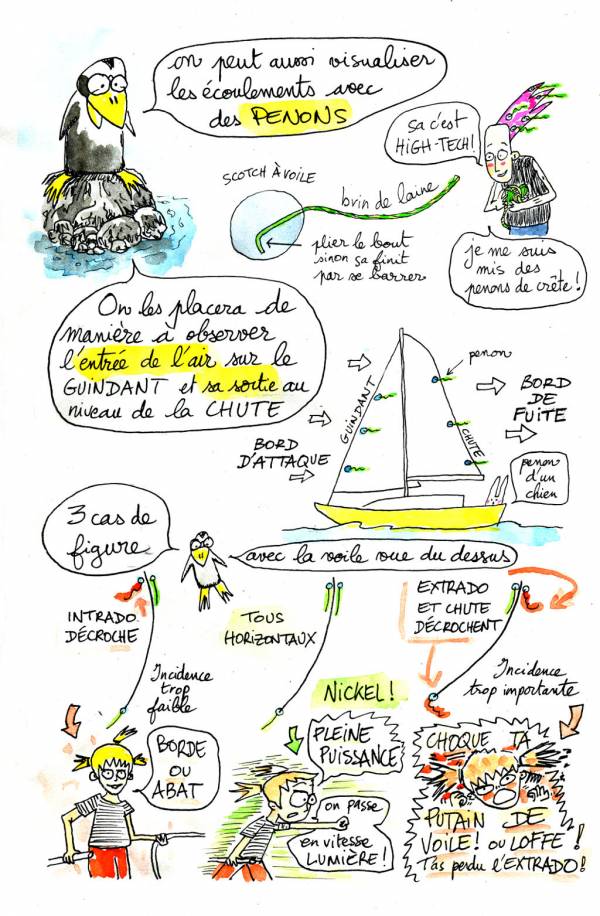 on peut aussi visualiser
les écoulements avec
des PENONS
sa c'est
HIGH-TECH!
SCOTCH À VOILE
brin de laine
plier le bout
sinon sa finit
par se barrer
je me suis
mis des
penons de crête!
On les placera de
manière à observer
l'entrée de l'air sur le
GUINDANT et sa sortie au
niveau de la CHUTE
penon
GUINDANT
CHUTE
BORD
DE
FUITE
BORD
D'ATTAQUE
penon
d'un
chien
3 cas de
figure
avec la voile vue du dessus
INTRADO
DÉCROCHE
Incidence
trop
faible
TOUS
HORIZONTAUX
NICKEL!
EXTRADO
ET CHUTE
DÉCROCHENT
Incidence
trop importante
BORDE
OU
ABAT
PLEINE
PUISSANCE
on passe
en vitesse
LUMIÈRE!
CHOQUE TA
PUTAIN DE
VOILE! OU LOFFE!
T'as perdu l'EXTRADO!